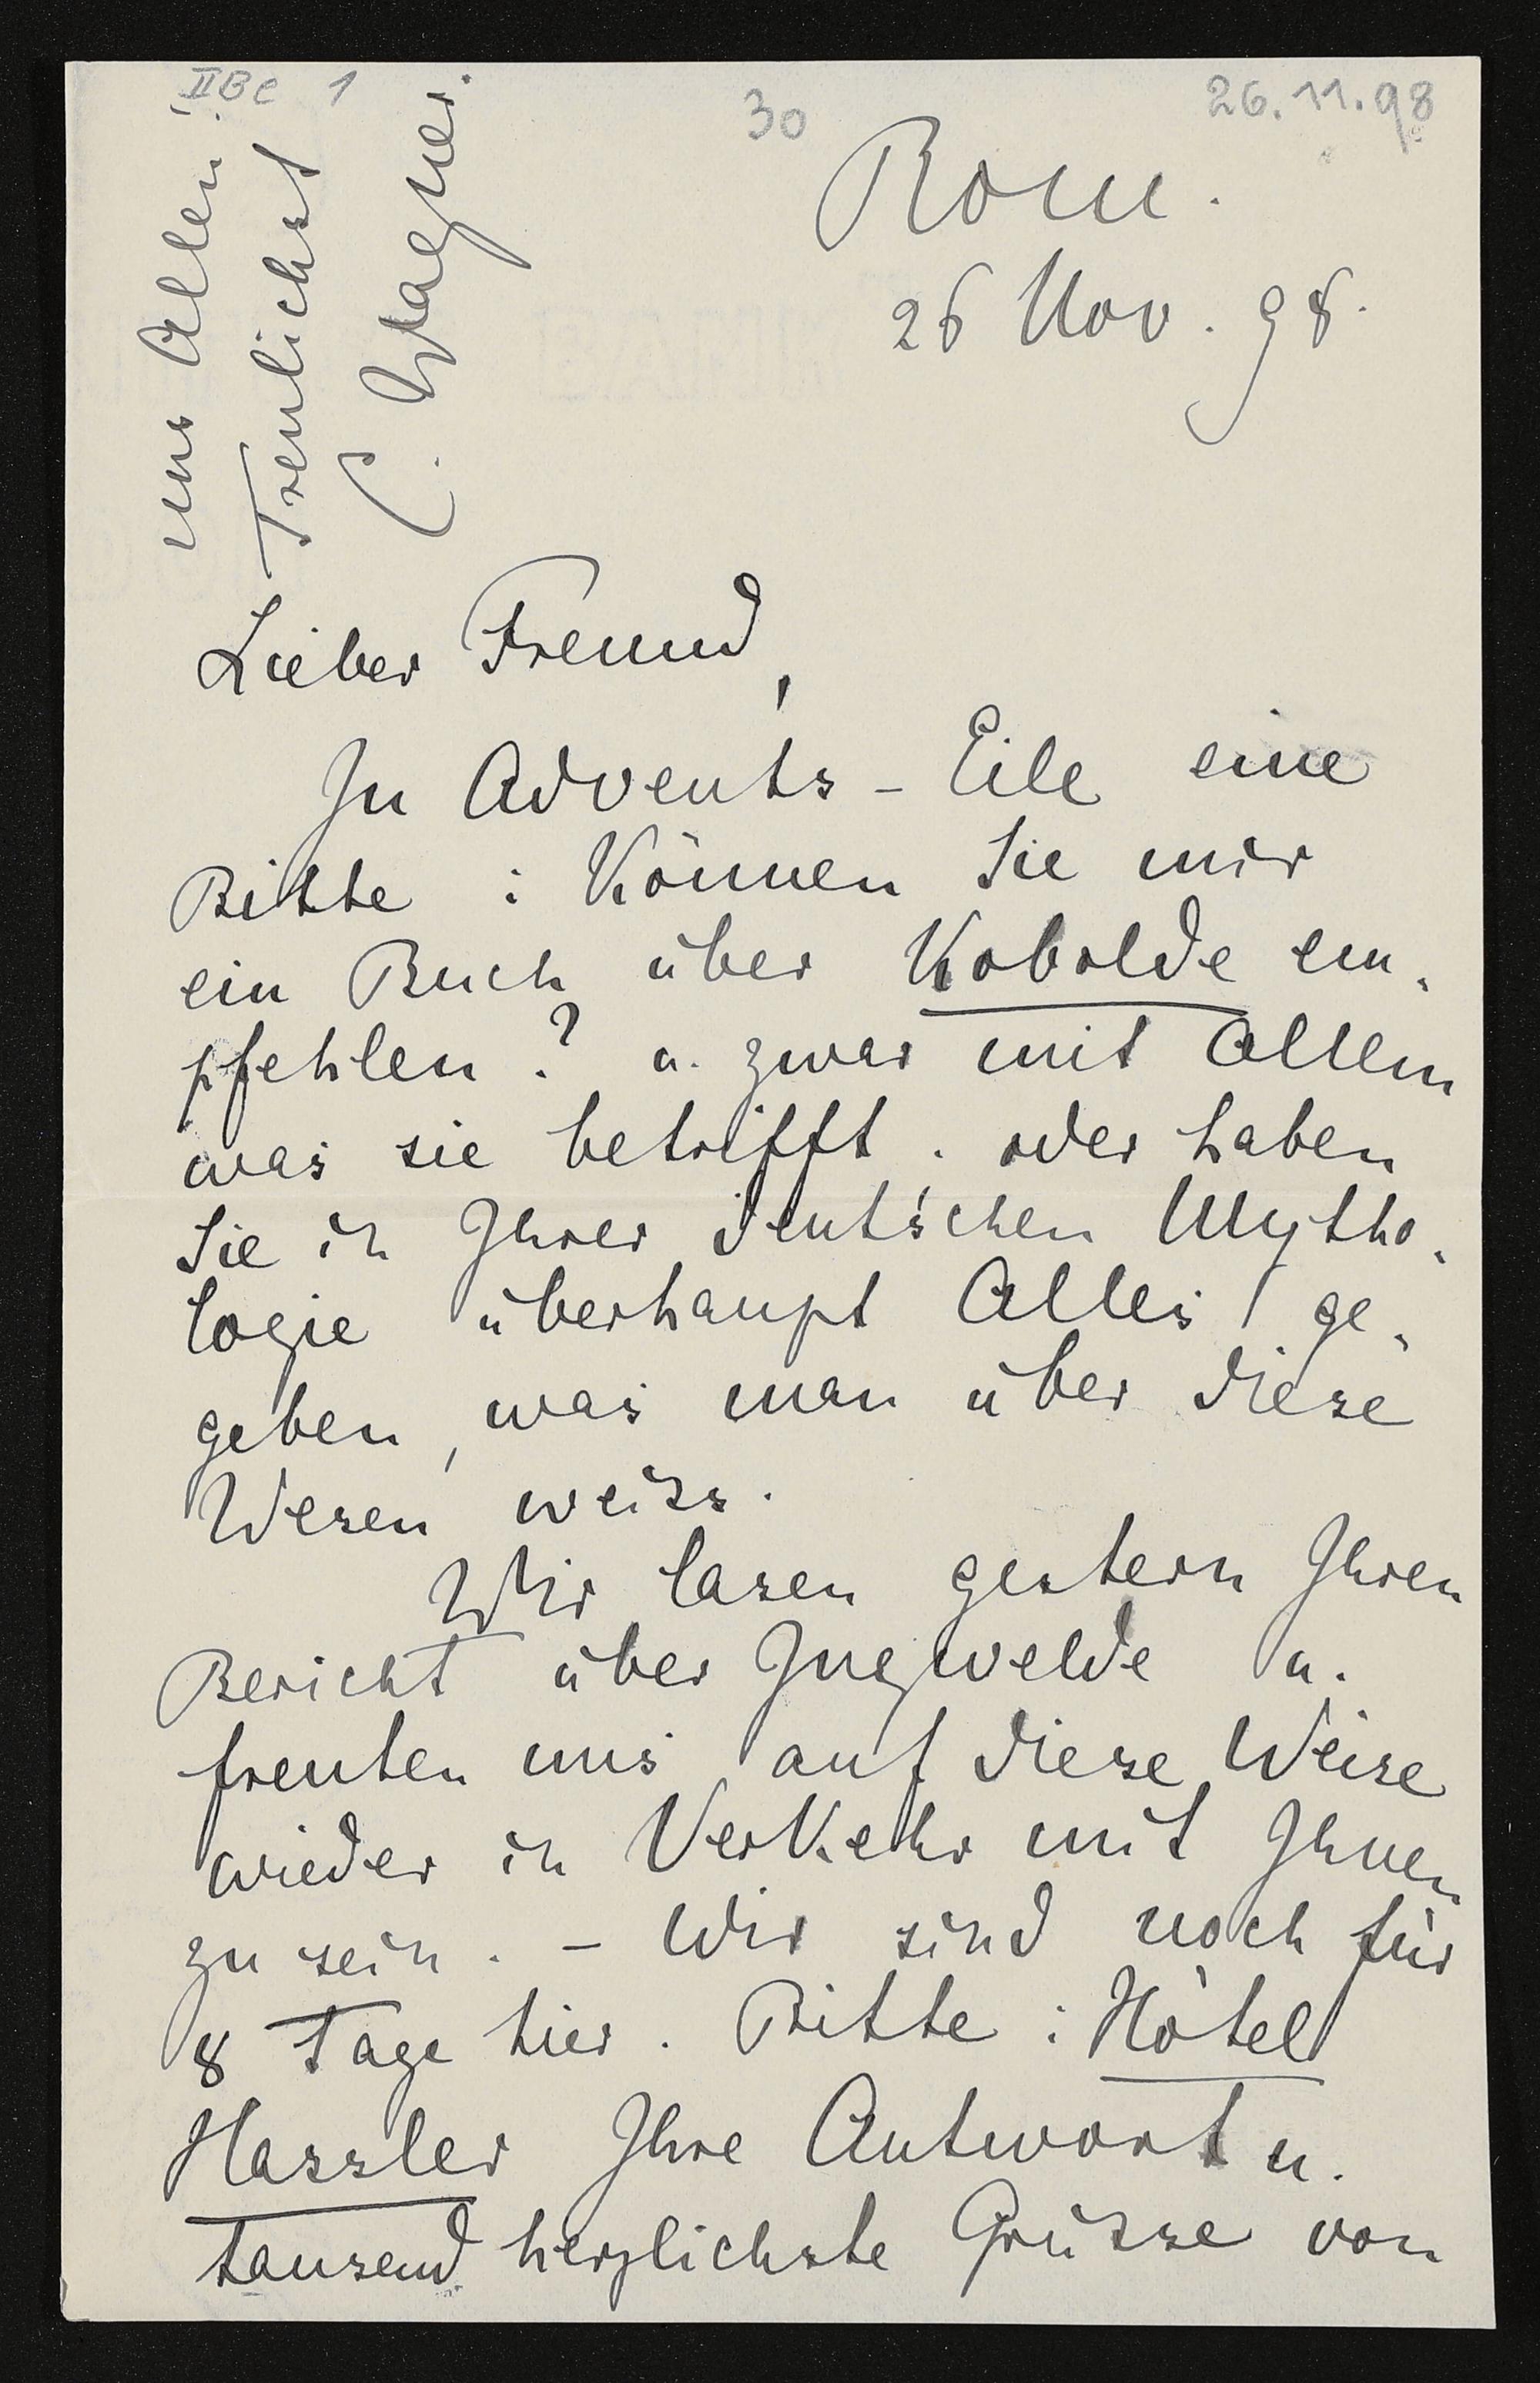 IIBe 1
30
26.11.98
Rom.
26 Nov. 98.
Lieber Freund,
In Advents-Eile eine
Bitte : Können Sie mir
ein Buch über Kobolde em-
pfehlen? u. zwar mit Allem
was sie betrifft. oder haben
Sie in Ihrer deutschen Mytho-
logie überhaupt Alles ge-
geben, was man über diese
Wesen weiss.
Wir lasen gestern Ihren
Bericht über Ingwelde u.
freuten uns auf diese Weise
wieder in Verkehr mit Ihnen
zu sein. – Wir sind noch für
8 Tage hier. Bitte : Hôtel
Hassler Ihre Antwort u.
tausend herzlichste Grüsse von
uns Allen!
Treulichst
C. Wagner.